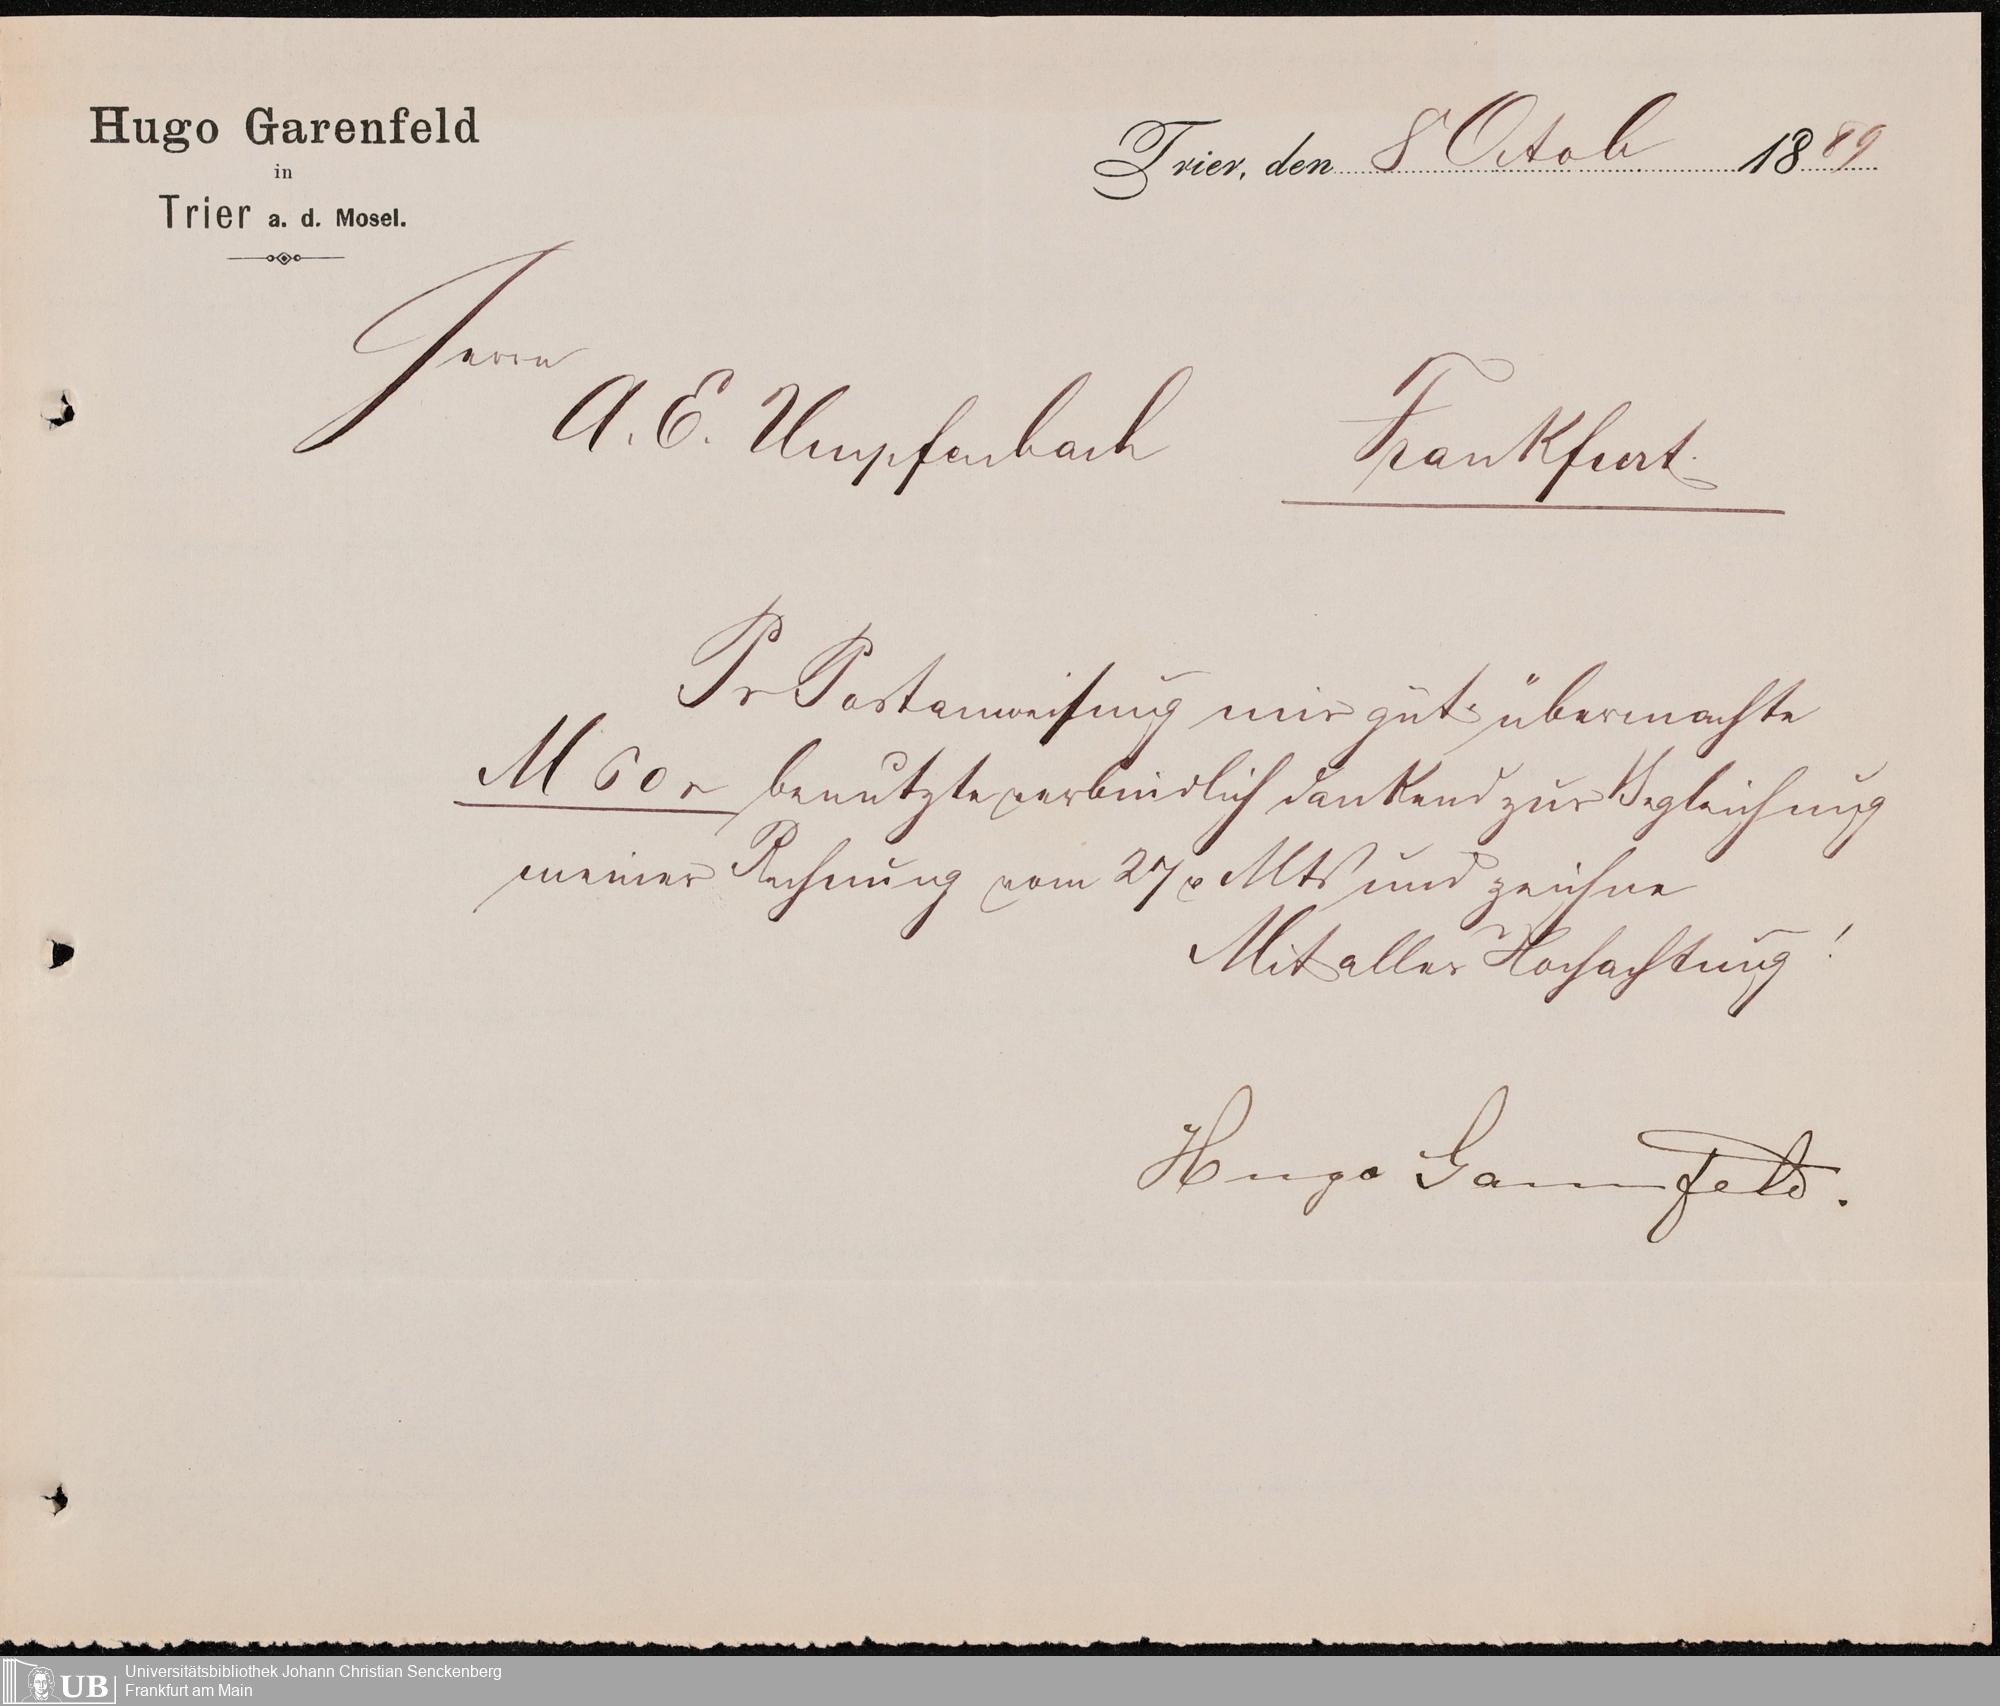 Hugo Garenfeld
in
Trier a. d. Mosel.
Trier, den 8 Octob 1889
Herrn
A. E. Umpfenbach Frankfurt.
Pr Postanweisung mir güt. übermachte
M 60 benutzte verbindlich dankend zur Begleichung
meiner Rechnung vom 27 v Mts und zeichne
Mit aller Hochachtung!
Hugo Garenfeld.
UB
Universitätsbibliothek Johann Christian Senckenberg
Frankfurt am Main